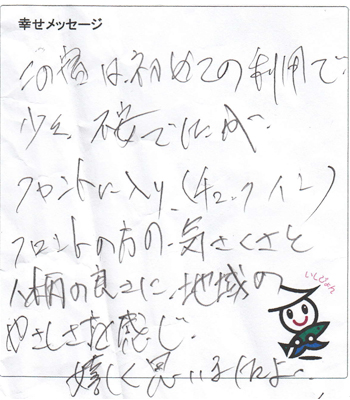 幸せメッセージ
この宿は、初めての利用で、
少々、不安でしたが、
フロントに入り、(チェックイン)
フロントの方の、気さくさと
人柄の良さに、地域の
やさしさを感じ、
嬉しく思いましたよ。